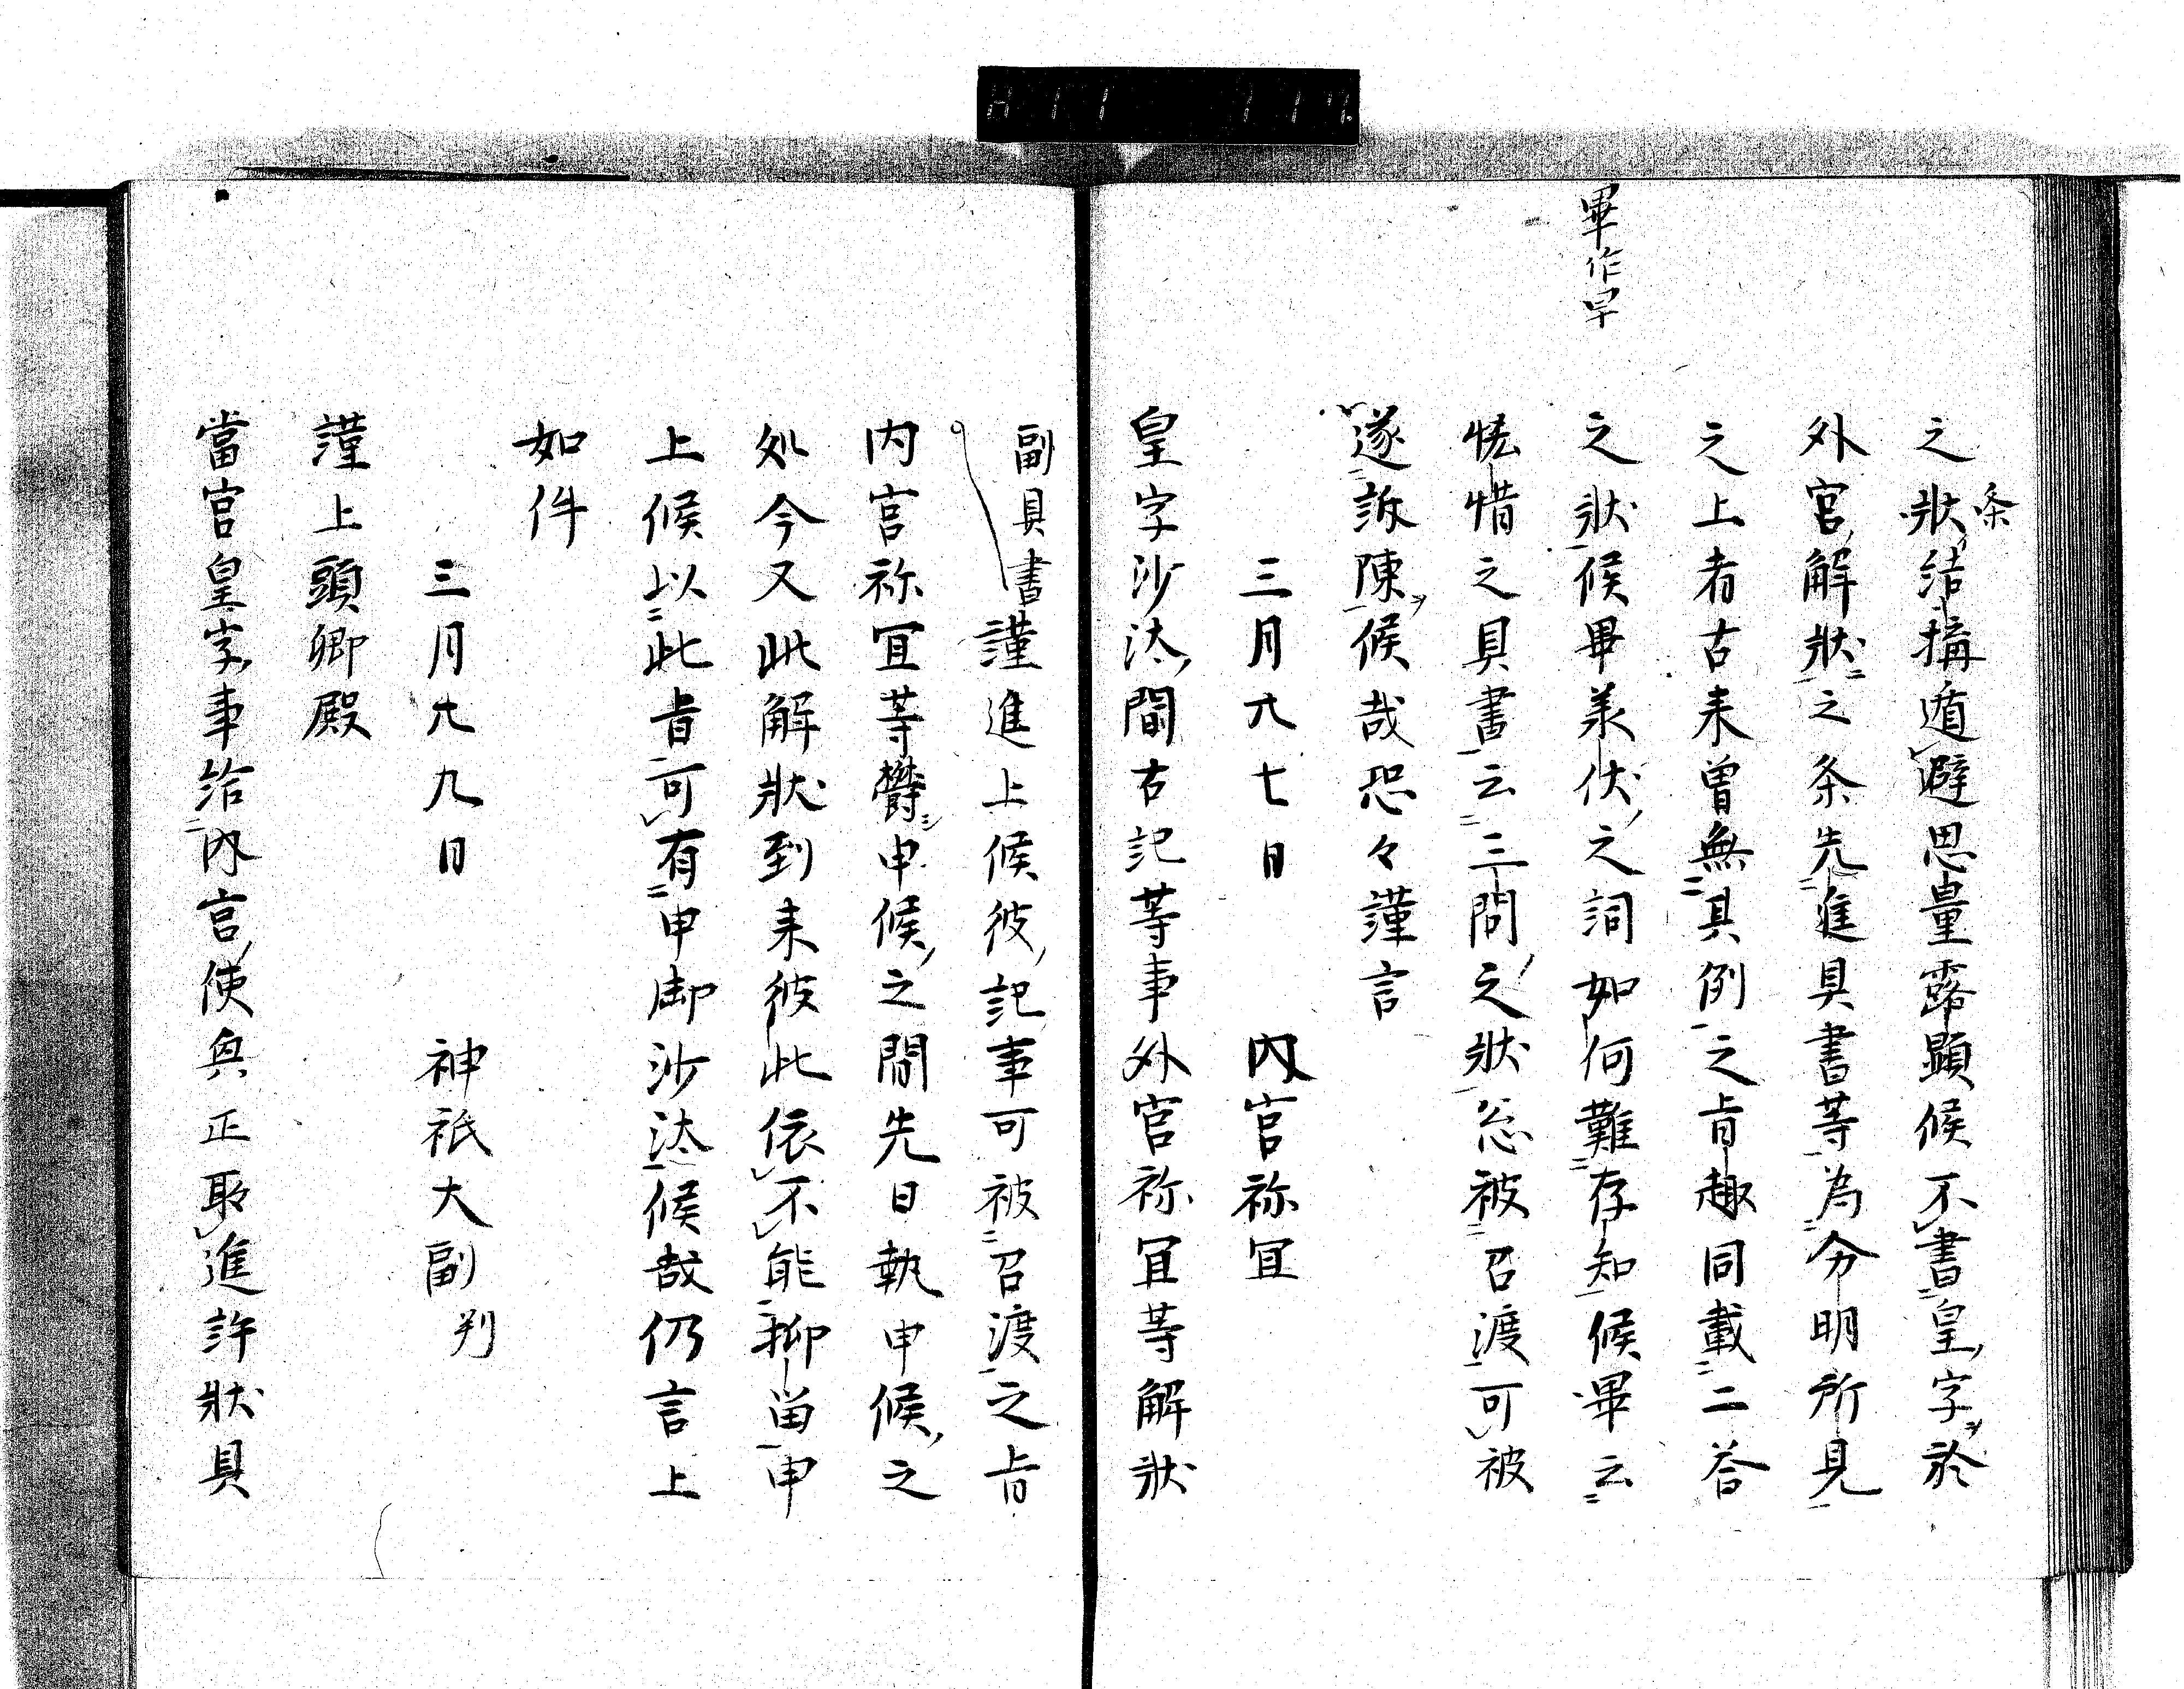 畢作早
之狀結搆遁避思量露顕候不書皇字於
条
外宮解狀之条先進具書等為分明所見
之上者古来曽無其例之旨趣同載二荅
之狀候畢承伏之詞如何難存知候畢云
惜之具書云三問之狀忩被召渡可被
遂訴陳候哉恐々謹言
三月廿七日 内宮祢宜
皇字沙汰間古記等事外宮祢宜等解狀
副具書謹進上候彼記事可被召渡之旨
内宮祢宜等欝申候之間先日執申候之
处今又此解狀到来彼此依不能抑留申
上候以此旨可有申御沙汰候哉仍言上
如件
三月廿九日 神祇大副判
謹上頭卿殿
當宮皇字事給内宮使與正取進許狀具